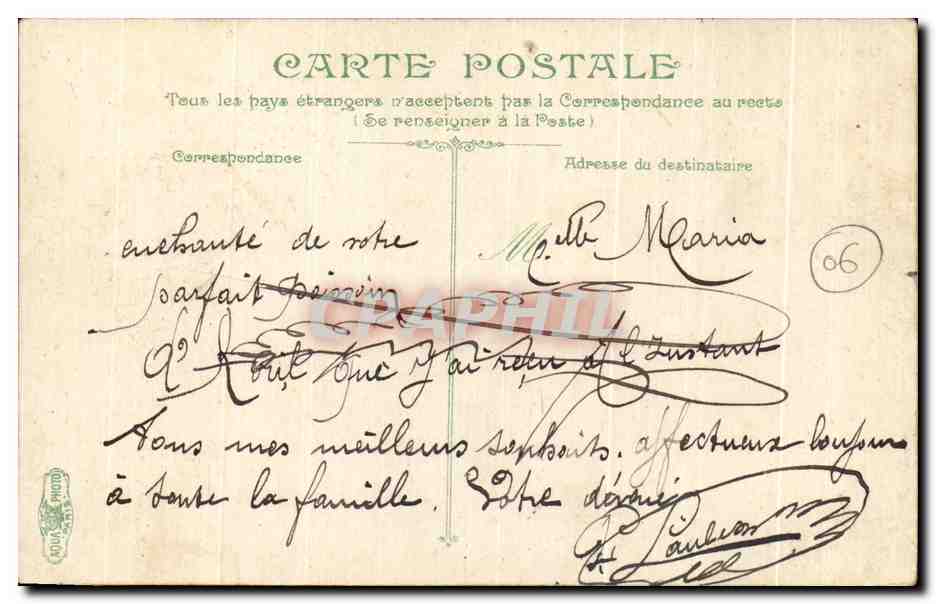 CARTE POSTALE
Tous les pays étrangers n'acceptent pas la Correspondance au recto
(Se renseigner à la Poste)
Correspondance
Adresse du destinataire
Melle Maria
06
enchanté de votre
parfait
que j'ai reçu à l'Instant
Tous mes meilleurs souhaits. affectueux bonjour
à toute la famille. Votre dévoué
CPAPHIL
AQUA PHOTO
PARIS